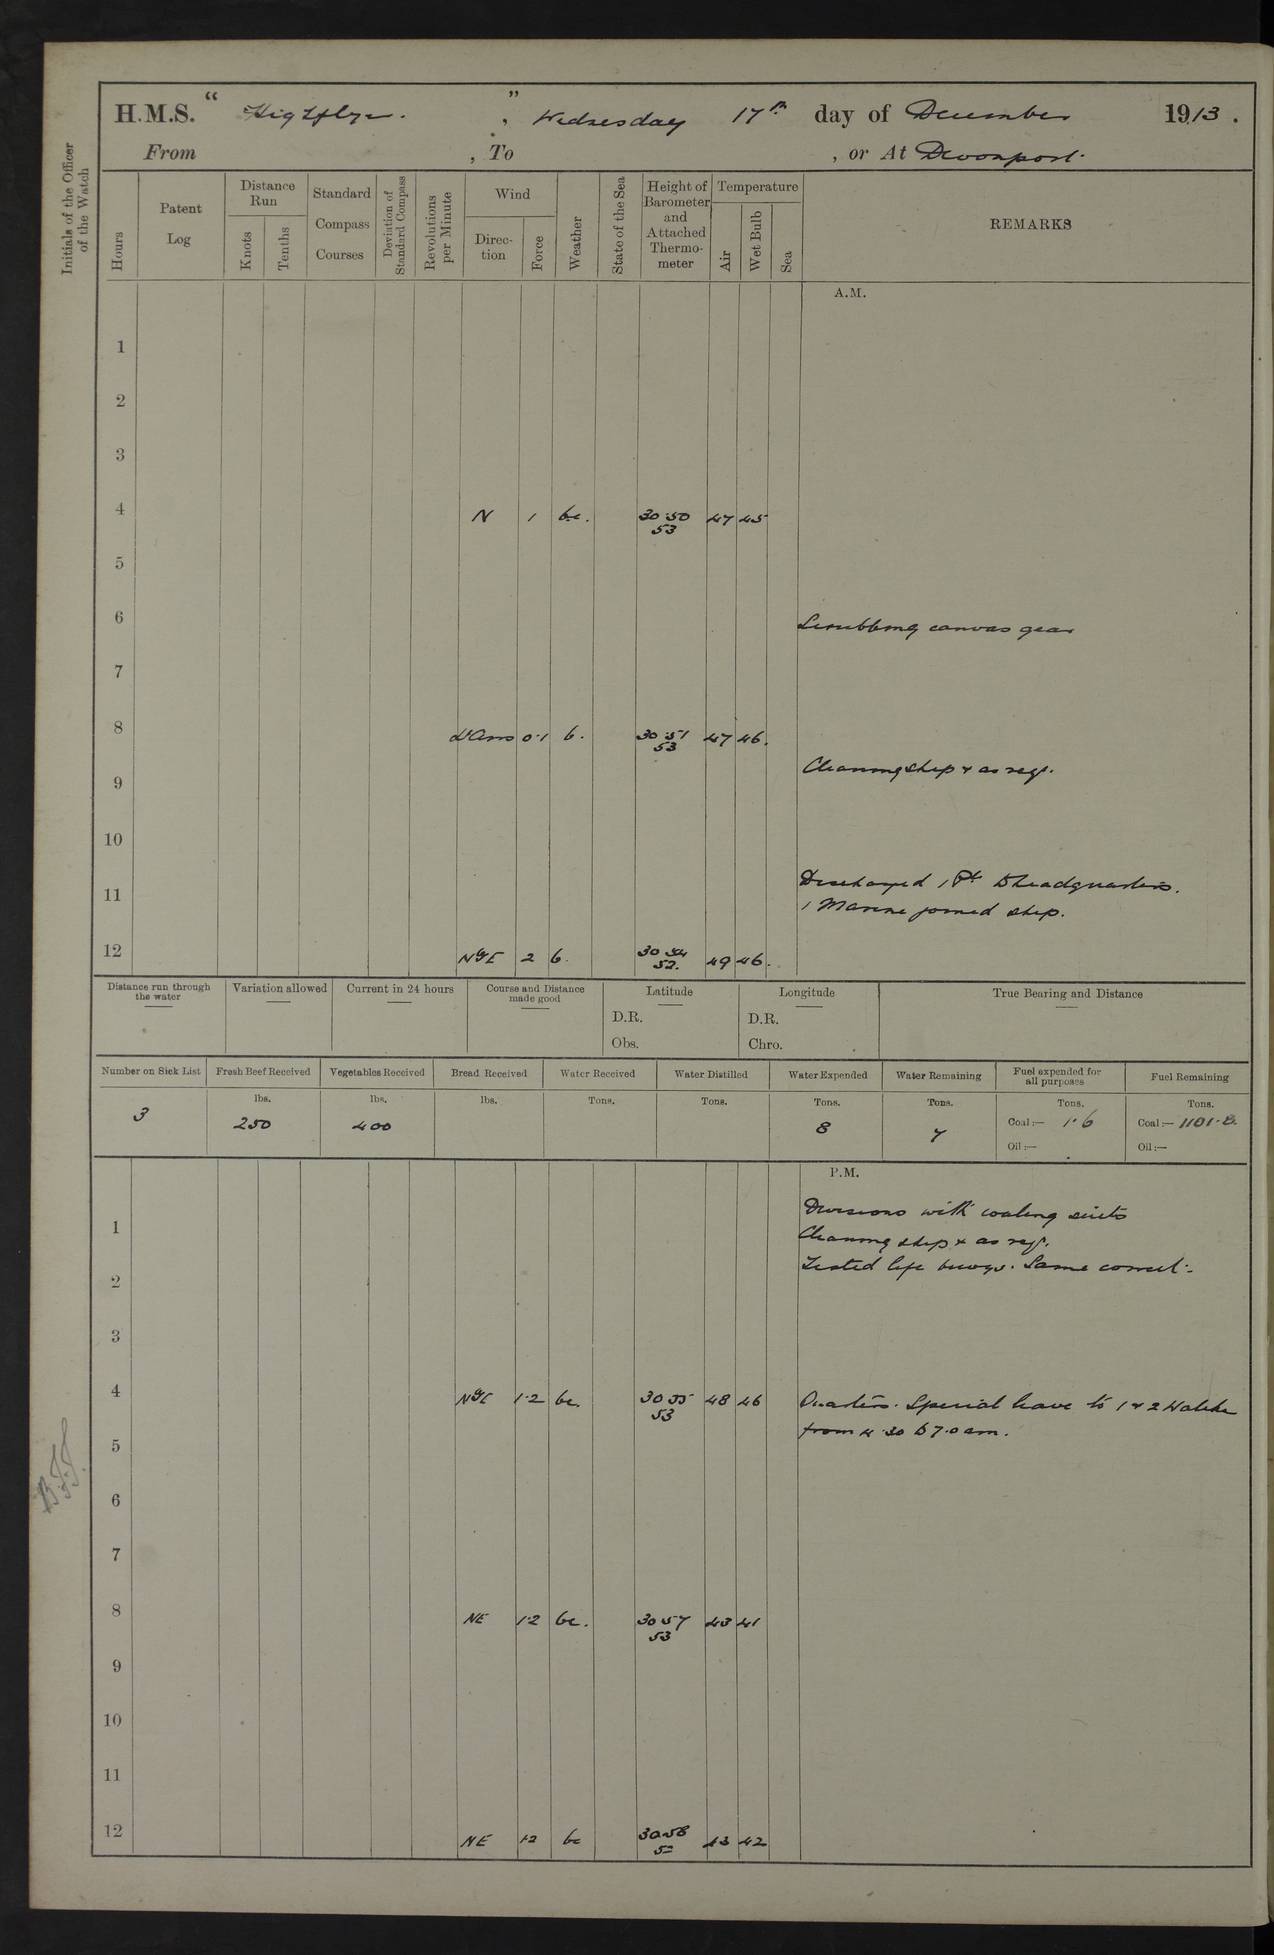 H.M.S. " Highflyer. ", Wednesday 17th day of December 1913.
From , To , or At Devonport.
Initials of the Officer of the Watch
Hours
Patent Log
Distance Run
Knots
Tenths
Standard Compass Courses
Deviation of Standard Compass
Revolutions per Minute
Wind
Direction
Force
Weather
State of the Sea
Height of Barometer and Attached Thermometer
Temperature
Air
Wet Bulb
Sea
REMARKS
A.M.
1
2
3
4 N 1 bc. 30.50 47 45
53
5
6 Scrubbing canvas gear
7
8 0.1 b. 30.51 47 46.
53
Cleaning ship & as req.
9
10
Discharged 1 Pt to headquarters.
11
1 Marine joined ship.
12 NyE 2 b. 30.54 49 46.
52.
Distance run through the water
Variation allowed
Current in 24 hours
Course and Distance made good
Latitude
D.R.
Obs.
Longitude
D.R.
Chro.
True Bearing and Distance
Number on Sick List
3
Fresh Beef Received
lbs.
250
Vegetables Received
lbs.
400
Bread Received
lbs.
Water Received
Tons.
Water Distilled
Tons.
Water Expended
Tons.
8
Water Remaining
Tons.
7
Fuel expended for all purposes
Tons.
Coal:— 1.6
Oil:—
Fuel Remaining
Tons.
Coal:— 1101.8.
Oil:—
P.M.
Divisions with coaling suits
1
Cleaning ship & as req.
Tested life buoys. Same correct.
2
3
4 NyE 1.2 bc. 30.55 48 46 Quarters. Special leave to 1 & 2 Watche
53
from 4.30 to 7.0 am.
5
6
7
8 NE 1.2 bc. 30.57 43 41
53
9
10
11
12 NE 1.2 bc 30.58 43 42